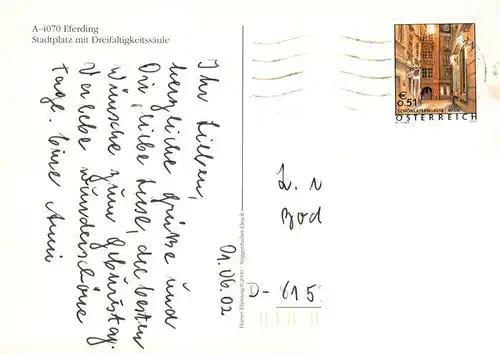 A-4070 Eferding
Stadtplatz mit Dreifaltigkeitssäule
Ihr Lieben,
herzliche Grüße und
Dir, liebe Luse, die besten
Wünsche zum Geburtstag.
Verlebe wunderschöne
Tage. Eure Anni
01.06.02
Hamer Eferding © 2000 · Voggenhuber-Druck
€
0.51
SCHÖNLATERNGASSE WIEN
ÖSTERREICH
D-815